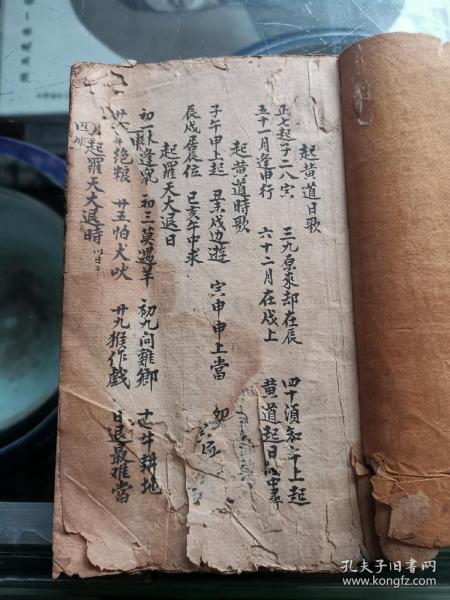 起黄道日歌
正七起子二八寅 三九原來却在辰 四十須知午上起
五十一月逢申行 六十二月在戌上 黄道起日此中尋
起黄道時歌
子午申上起 丑未戌边遊 寅申
上當 卯酉
辰戌居辰位 巳亥午中求
起羅天大退日
初一休逢鼠 初三莫遇羊 初九问雞鄉 廿 牛耕地
廿 绝粮 廿五怕犬吠 廿九猴作戲 日退最难當
起羅天大退時
孔夫子旧书网
www.kongfz.com